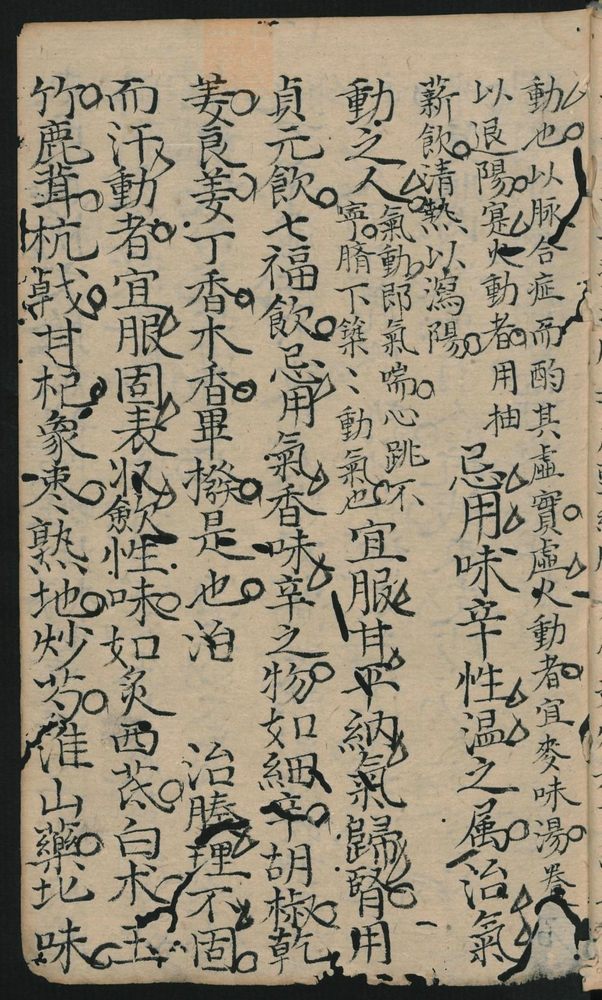 動也以脉合症而酌其虛實虛火動者宜麥味湯
以退陽寔火動者用抽
薪飲清熱以瀉陽
忌用味辛性温之属治氣
動之人
氣動即氣喘心跳不
寧臍下築〻動氣也
宜服甘平納氣歸腎用
貞元飲七福飲忌用氣香味辛之物如細辛胡椒乾
姜良姜丁香木香畢撥是也治
治腠理不固
而汗動者宜服固表收歛性味如炙西茋白术玉
竹鹿茸杭戟甘杞象枣熟地炒芍淮山藥北味